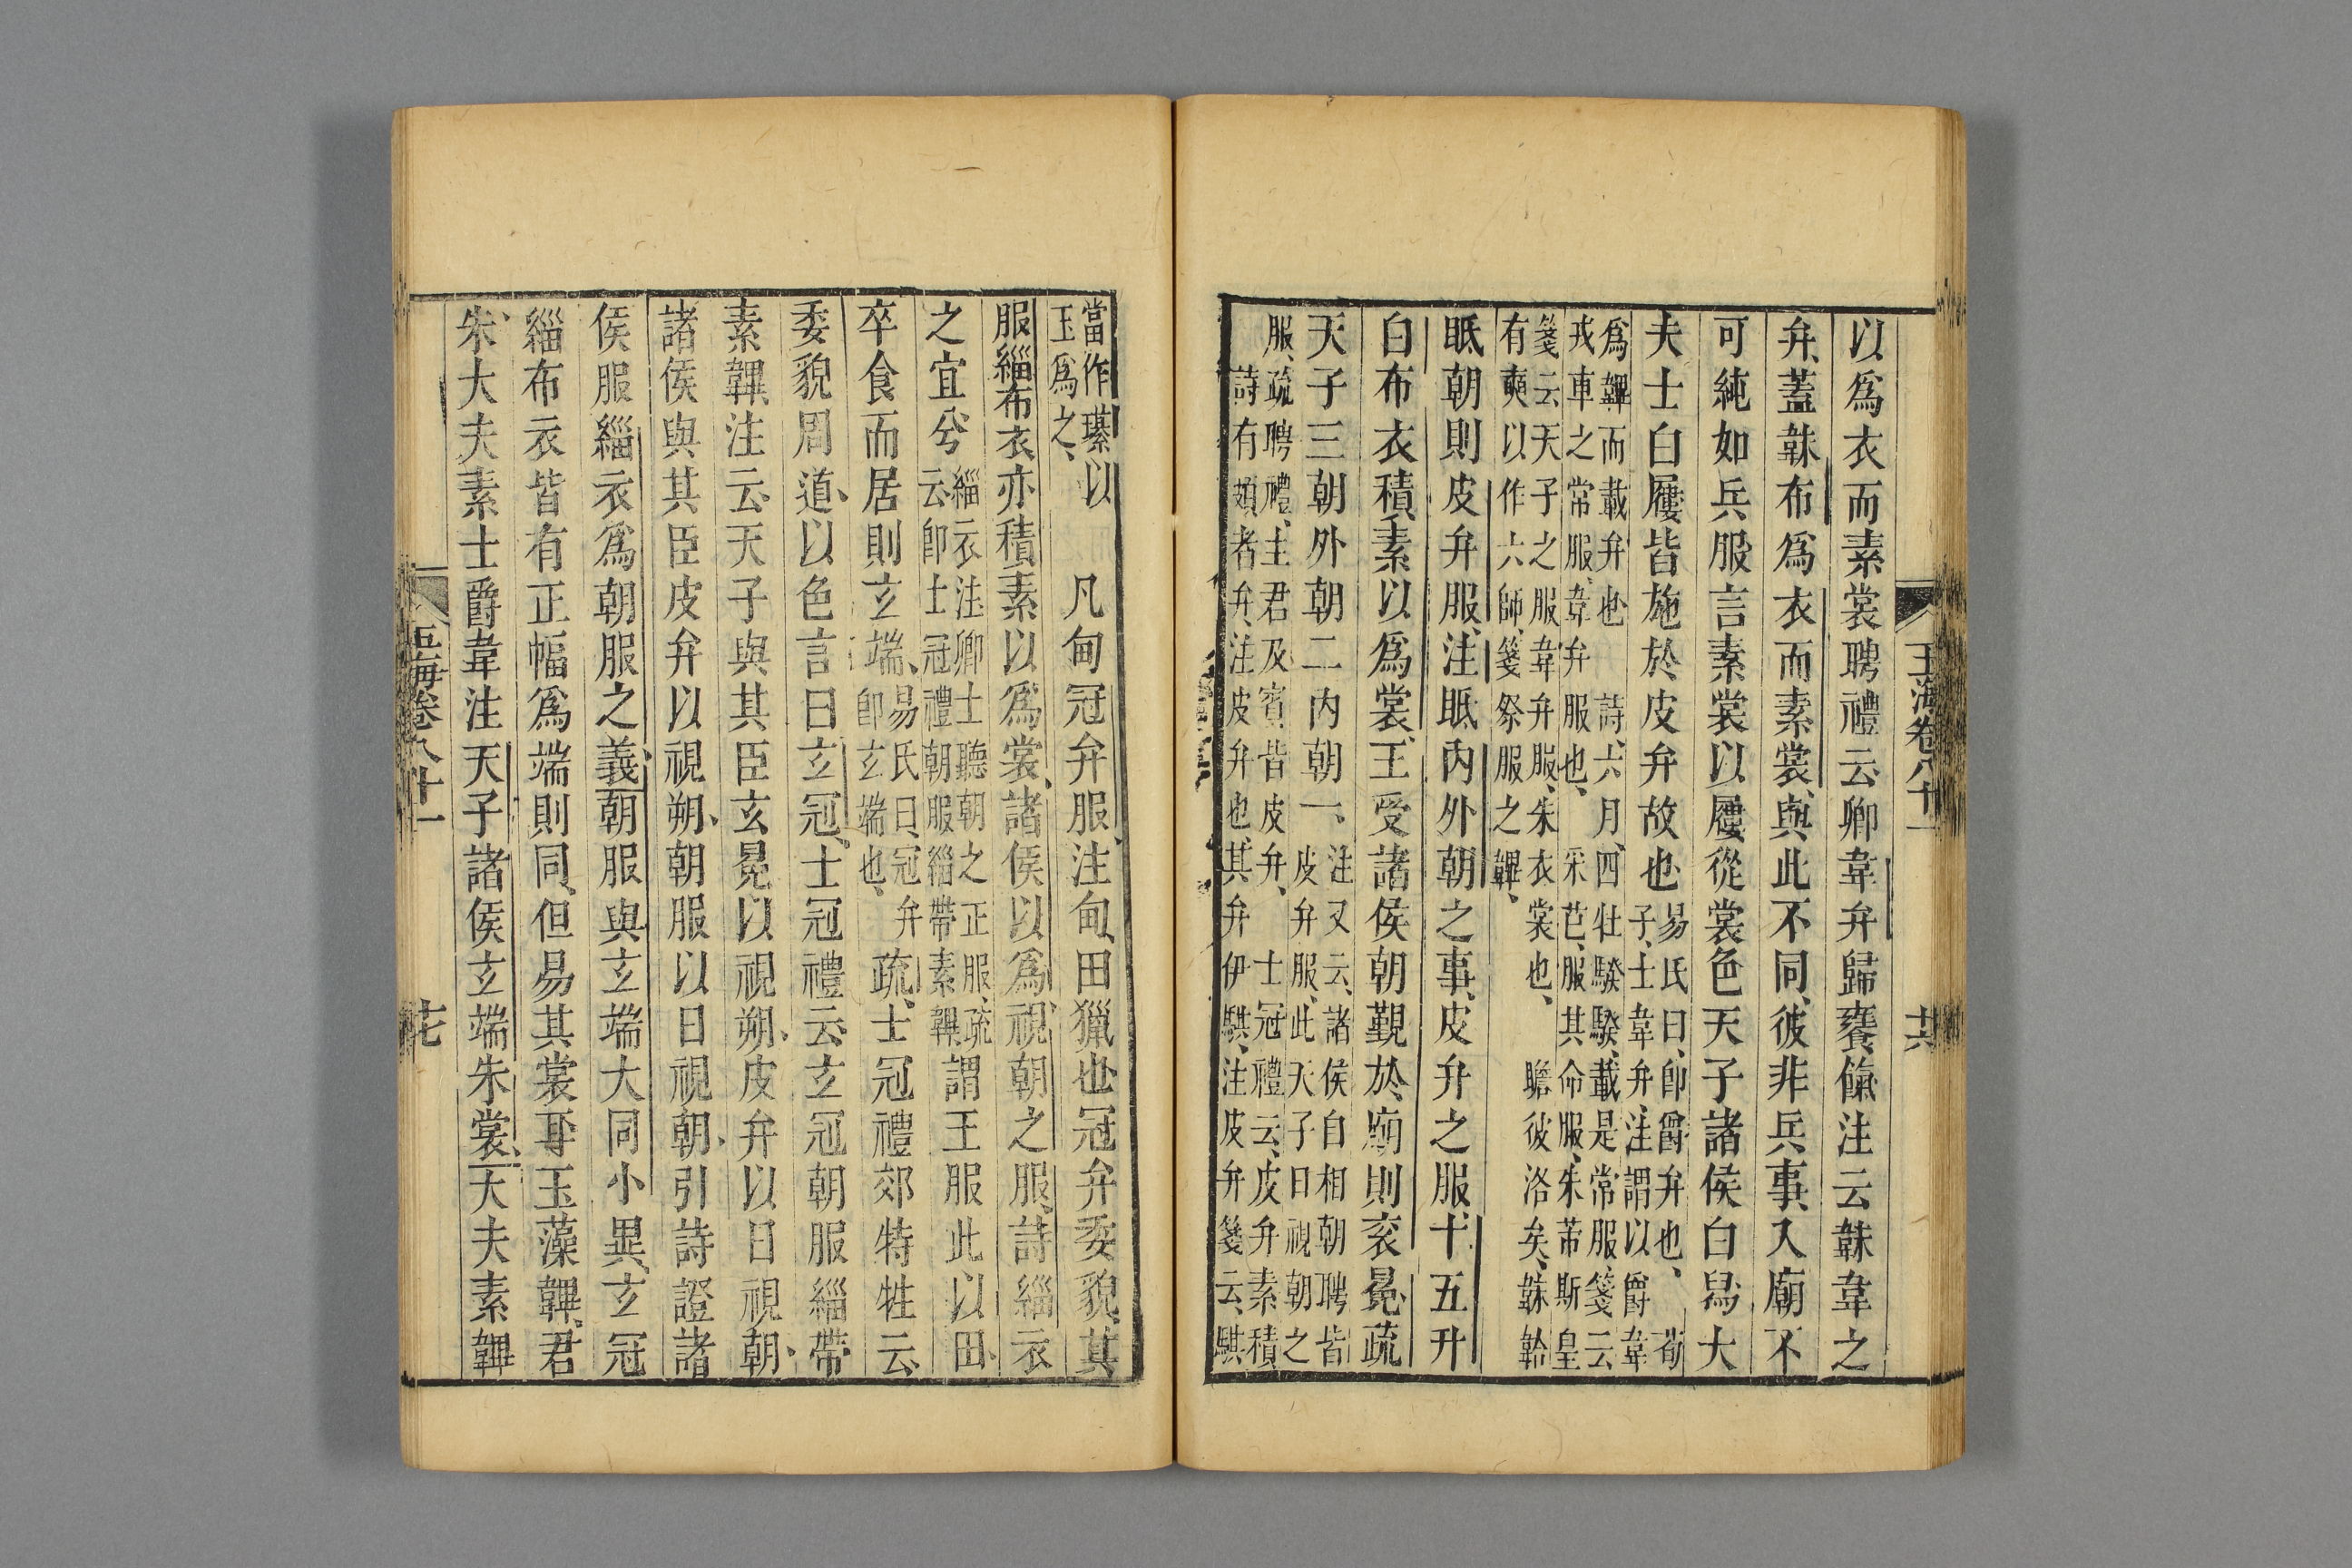 玉海卷八十一
以爲衣而素裳聘禮云卿韋弁歸饔餼注云韎韋之
弁、蓋韎布爲衣而素裳、與此不同、彼非兵事、入廟不
可純如兵服言素裳以屨從裳色天子諸侯白舄大
夫士白屨皆施於皮弁故也易氏曰、卽爵弁也、荀
子、士韋弁、注謂以爵韋
爲韠而載弁也 詩、六月、四牡騤騤、載是常服、箋云、
戎車之常服、韋弁服也、采芑、服其命服、朱芾斯皇
箋云、天子之服、韋弁服、朱衣裳也、瞻彼洛矣、韎韐
有奭以作六師、箋祭服之韠、
眡朝則皮弁服、注眡內外朝之事、皮弁之服、十五升
白布衣積素以爲裳、王受諸侯朝覲於廟則衮冕疏
天子三朝外朝二內朝一、注又云、諸侯自相朝聘皆
皮弁服、此天子日視朝之
服、疏聘禮、主君及賓皆皮弁、士冠禮云、皮弁素積、
詩有頍者弁、注皮弁也、其弁伊騏、注皮弁箋云、騏
當作璂以
玉爲之、凡甸冠弁服、注甸、田獵也冠弁委貌、其
服緇布衣亦積素以爲裳、諸侯以爲視朝之服、詩緇衣
之宜兮緇衣注卿士聽朝之正服、疏
云卽士冠禮朝服緇帶素韠謂王服此以田、
卒食而居則玄端、易氏曰、冠弁
卽玄端也、疏、士冠禮郊特牲云、
委貌周道、以色言曰玄冠、士冠禮云玄冠朝服緇帶
素韠、注云天子與其臣玄冕以視朔、皮弁以日視朝、
諸侯與其臣皮弁以視朔、朝服以日視朝、引詩證諸
侯服緇衣爲朝服之義、朝服與玄端大同小異、玄冠
緇布衣皆有正幅爲端則同、但易其裳耳玉藻韠、君
朱、大夫素士爵韋注天子諸侯玄端朱裳、大夫素韠
玉海卷八十一